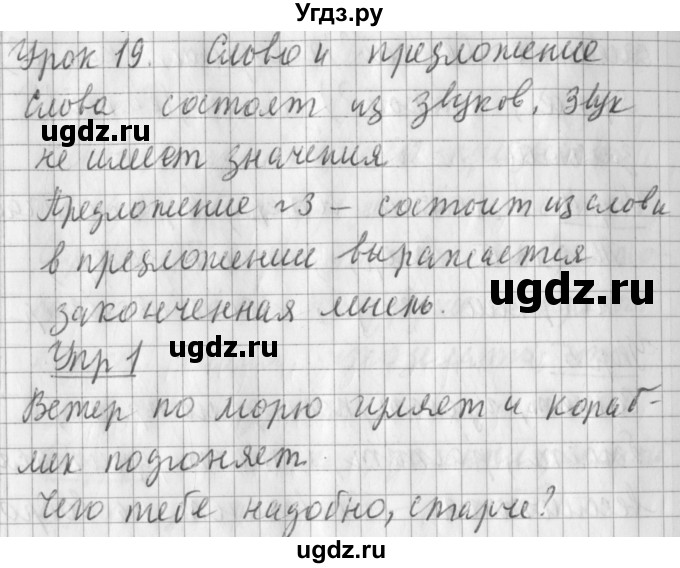 Угдз.ру
Урок 19. Слово и предложение
Слова состоят из звуков. Звук
ugdz.ru
не имеет значения
Предложение – состоит из слов и
в предложении выражается
ugdz.ru
законченная мысль.
Упр 1
ugdz.ru
Ветер по морю гуляет и кораб-
лик подгоняет.
ugdz.ru
Чего тебе надобно, старче?
ugdz.ru